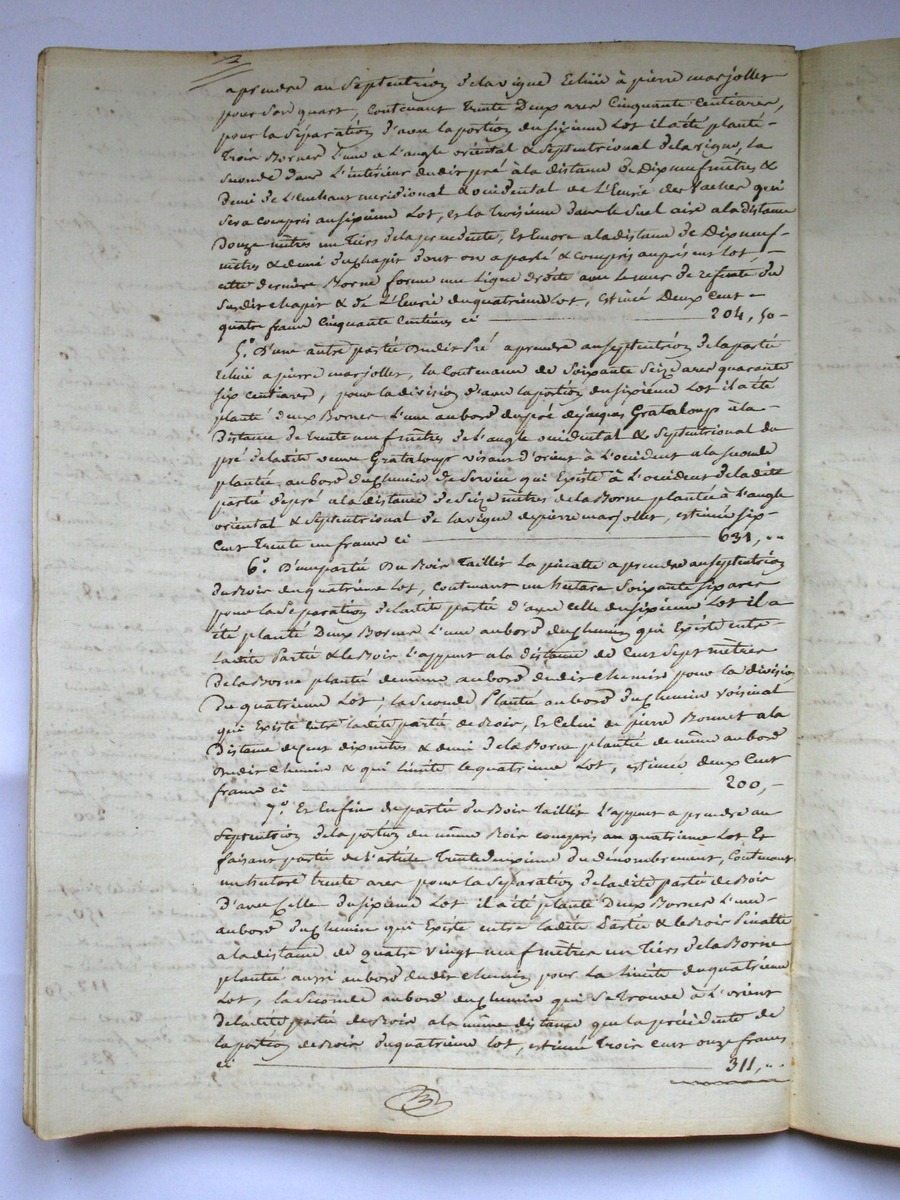 a prendre au Septentrion de la vigne Echüe à pierre marjollet
pour Son quart, Contenant trente Deux ares Cinquante Centiares,
pour la Séparation d'avec la portion du Sixieme Lot il a été planté
trois Bornes l'une a L'angle oriental & Septentrional de la vigne, la
Seconde dans L'intérieur du dit pré à la distance de Dix neuf mètres &
demi de L'Enchant méridional & occidental de L'Eurie des vaches qui
Sera compris au Sixieme Lot, et la troisieme dans le Suel aire a la distance
Douze mètres un tiers de la precedente, Et Encore a la distance de Dix neuf
mètres & demi du chapit dont on a parlé & compris au présent lot,
cette derniere Borne forme une Ligne droite avec le mur de refente du
Susdit chapit & de L'Eurie du quatrieme lot, estimé Deux Cent
quatre francs Cinquante Centimes ci 204, 50
5.° D'une autre partie du dit Pré a prendre au Septentrion de la partie
Echüe a pierre marjollet, la Contenance de Soixante Seize ares quarante
Six centiares, pour la division d'avec la portion du Sixieme Lot il a été
planté deux Bornes L'une au bord du pré de jacques Grataloup à la
Distance de trente neuf mètres de l'angle occidental & Septentrional du
pré de la dite veuve Grataloup visant d'orient à L'occident a la Seconde
plantée au bord du chemin de Service qui Existe à L'occident de la dite
partie de pré a la distance de Seize mètres de la Borne plantée à L'angle
oriental & Septentrional de la vigne de pierre marjollet, estimée Six
Cent Trente un francs ci 631, "
6.° D'une partie Du Bois Taillis La pinatte a prendre au Septentrion
du Bois du quatrieme Lot, contenant un hectare Soixante Six ares
pour la Separation de la dite partie d'avec celle du Sixieme Lot il a
été planté Deux Bornes L'une au bord du chemin qui Existe entre
La dite Partie & le Bois L'appent a la distance de Cent Sept mètres
de la Borne planté de meme au bord du dit chemin pour la division
du quatrieme Lot; la Seconde Plantée au bord du chemin voisinal
qui Existe entre la dite partie de Bois, Et Celui de pierre Bonnet a la
Distance de Cent dix mètres & demi de la Borne plantée de même au bord
du dit chemin & qui limite le quatrieme Lot, estimée deux Cent
francs ci 200, "
7.° Et Enfin de partie du Bois taillis L'appent a prendre au
Septentrion de la portion du même Bois compris au quatrieme Lot Et
faisant partie de l'article Trente deuxieme du dénombrement, Contenant
un hectare trente ares pour la Séparation de la dite partie de Bois
D'avec Celle du Sixieme Lot il a été planté Deux Bornes L'une
au bord du Chemin qui Existe entre la dite Partie & le Bois Pinatte
a la distance de quatre vingt neuf mètres un Tiers de la Borne
plantée aussi au bord du dit chemin pour La limite du quatrieme
Lot, la Seconde au bord du chemin qui Se trouve à L'orient
de la dite partie de Bois a la même distance que la précédente de
la portion de Bois du quatrieme Lot, estimé Trois Cent onze francs
ci 311, "